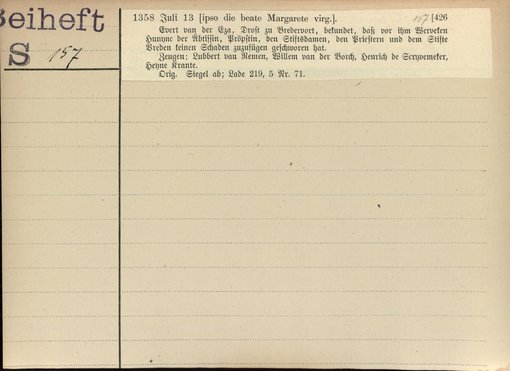 Beiheft
S 157
1358 Juli 13 [ipso die beate Margarete virg.]. 157 [426
Evert van der Eza, Drost zu Bredervort, bekundet, daß vor ihm Werveken
Humme der Äbtissin, Pröpstin, den Stiftsdamen, den Priestern und dem Stifte
Vreden keinen Schaden zuzufügen geschworen hat.
Zeugen: Lubbert van Remen, Willem van der Borch, Henrich de Scrywemeker,
Heyne Krante.
Orig. Siegel ab; Lade 219, 5 Nr. 71.